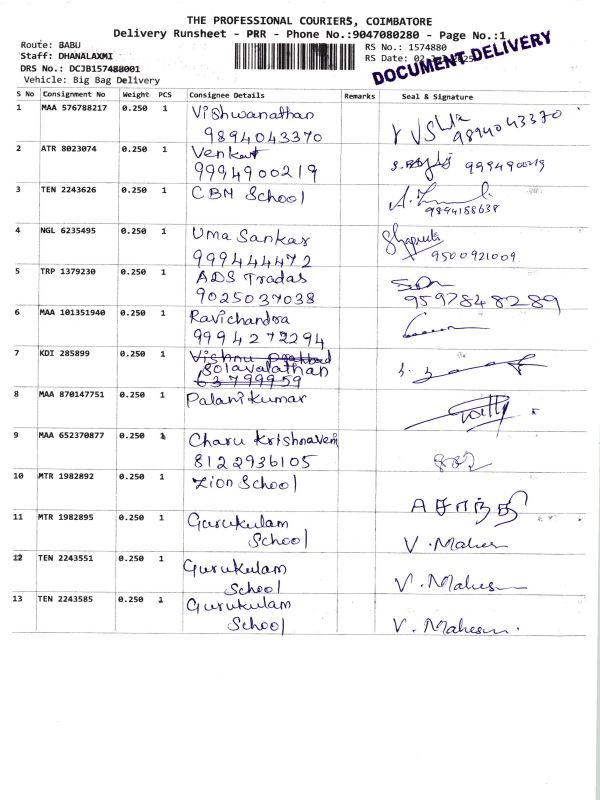 THE PROFESSIONAL COURIERS, COIMBATORE
Delivery Runsheet - PRR - Phone No.:9047080280 - Page No.:1
Route: BABU
Staff: DHANALAXMI
DRS No.: DCJB157488001
Vehicle: Big Bag Delivery
RS No.: 1574880
RS Date: 02
DOCUMENT DELIVERY
S No Consignment No Weight PCS Consignee Details Remarks Seal & Signature
1 MAA 576788217 0.250 1 Vishwanathan
9894043370 9894043370
2 ATR 8023074 0.250 1 Venkat
9994900219 9994900219
3 TEN 2243626 0.250 1 CBM School
9894188638
4 NGL 6235495 0.250 1 Uma Sankar
999444472 9500921009
5 TRP 1379230 0.250 1 ADS Tradas
9025037038 9597848289
6 MAA 101351940 0.250 1 Ravichandra
9994272294
7 KDI 285899 0.250 1 Vishnu
Solavalathan
63799959
8 MAA 870147751 0.250 1 Palanikumar
9 MAA 652370877 0.250 1 Charu Krishnaveni
8122936105
10 MTR 1982892 0.250 1 Zion School
A சாந்தி
11 MTR 1982895 0.250 1 Gurukulam
School V. Mahes
12 TEN 2243551 0.250 1 Gurukulam
School V. Mahes
13 TEN 2243585 0.250 1 Gurukulam
School V. Mahes